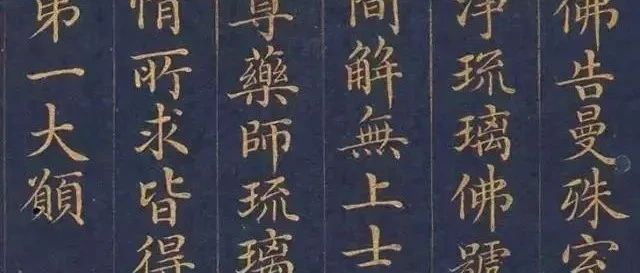 佛告曼殊室
淨琉璃佛號
間解無上士
尊藥師琉璃
情所求皆得
第一大願